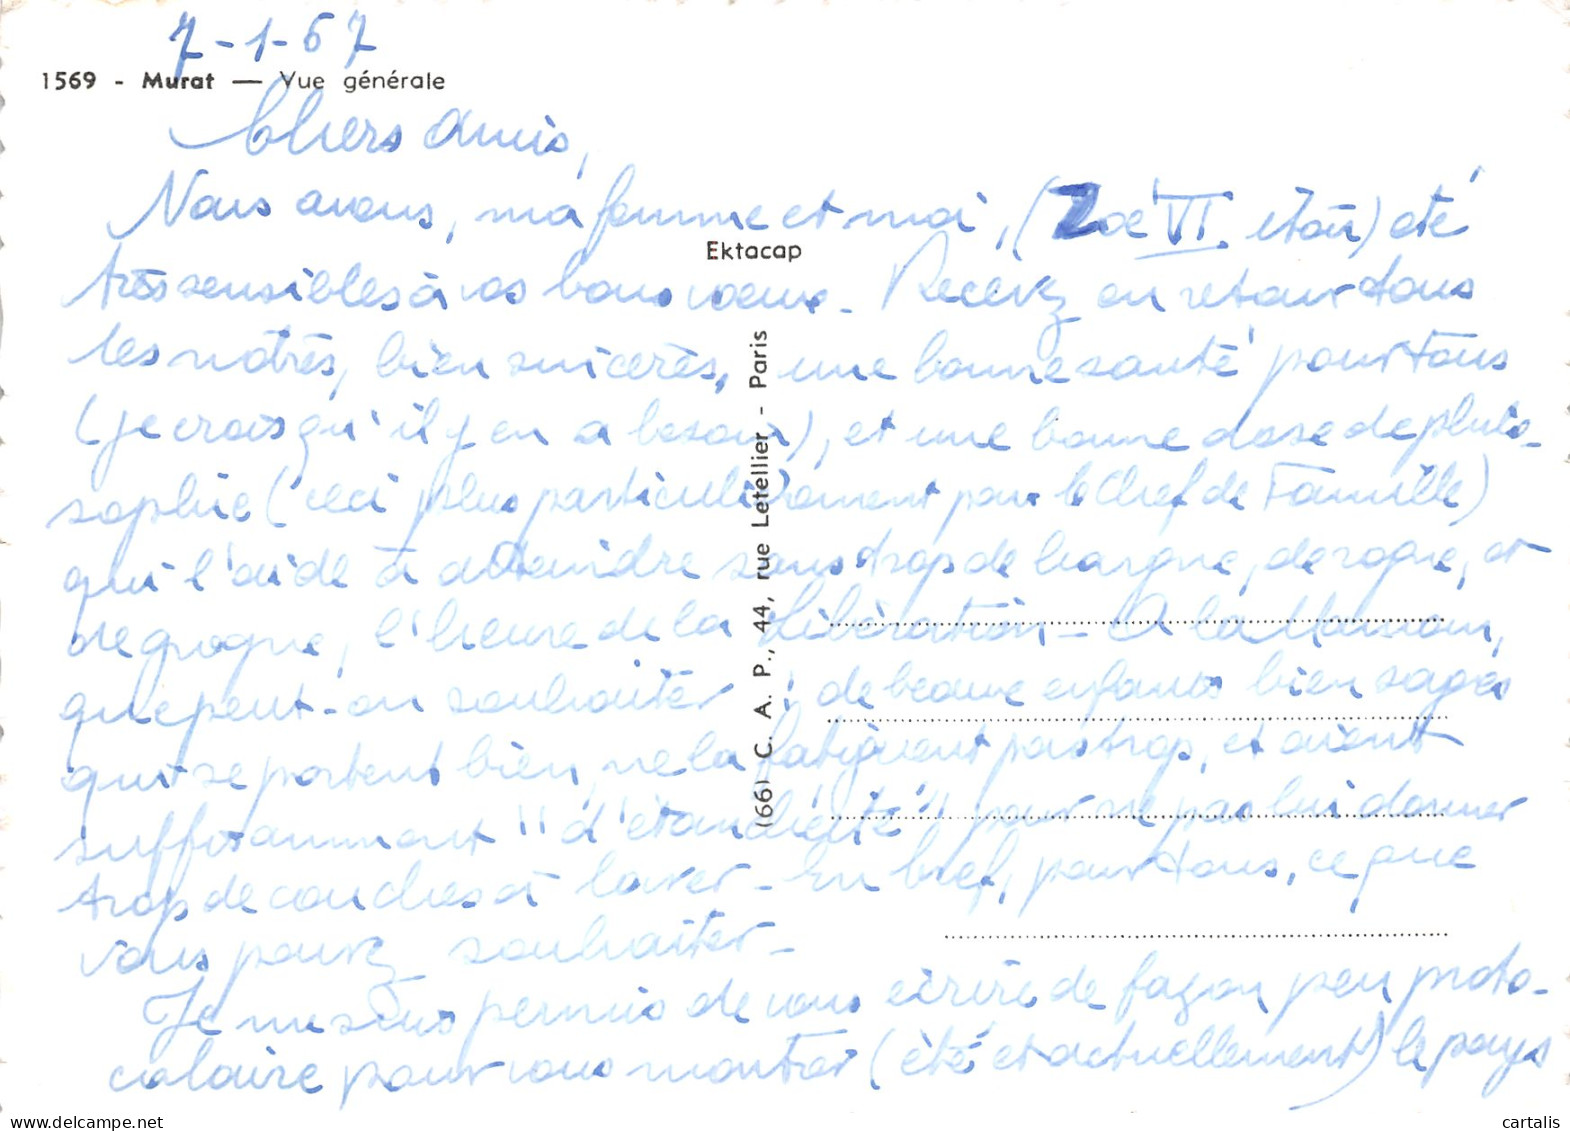 7-1-67
1569 - Murat — Vue générale
Chers Amis,
Nous avons, ma femme et moi, (Zoé VI itou) été
Ektacap
très sensibles à vos bons vœux. Recevez en retour tous
les nôtres, bien sincères, une bonne santé pour Tous
(je crois qu'il y en a besoin), et une bonne dose de philo-
sophie (ceci plus particulièrement pour le Chef de Famille)
qui l'aide à atteindre sans trop de hargne, de rogne, et
de grogne, l'heure de la Libération - A la Maman,
que peut-on souhaiter : de beaux enfants bien sages
qui se portent bien, ne la fatiguent pas trop, et aient
suffisamment "d'étanchéité" pour ne pas lui donner
trop de couches à laver - En bref, pour tous, ce que
vous pouvez souhaiter -
Je me suis permis de vous écrire de façon peu proto-
colaire pour vous montrer (été et actuellement) le pays
(66) C. A. P., 44, rue Letellier - Paris
cartalis